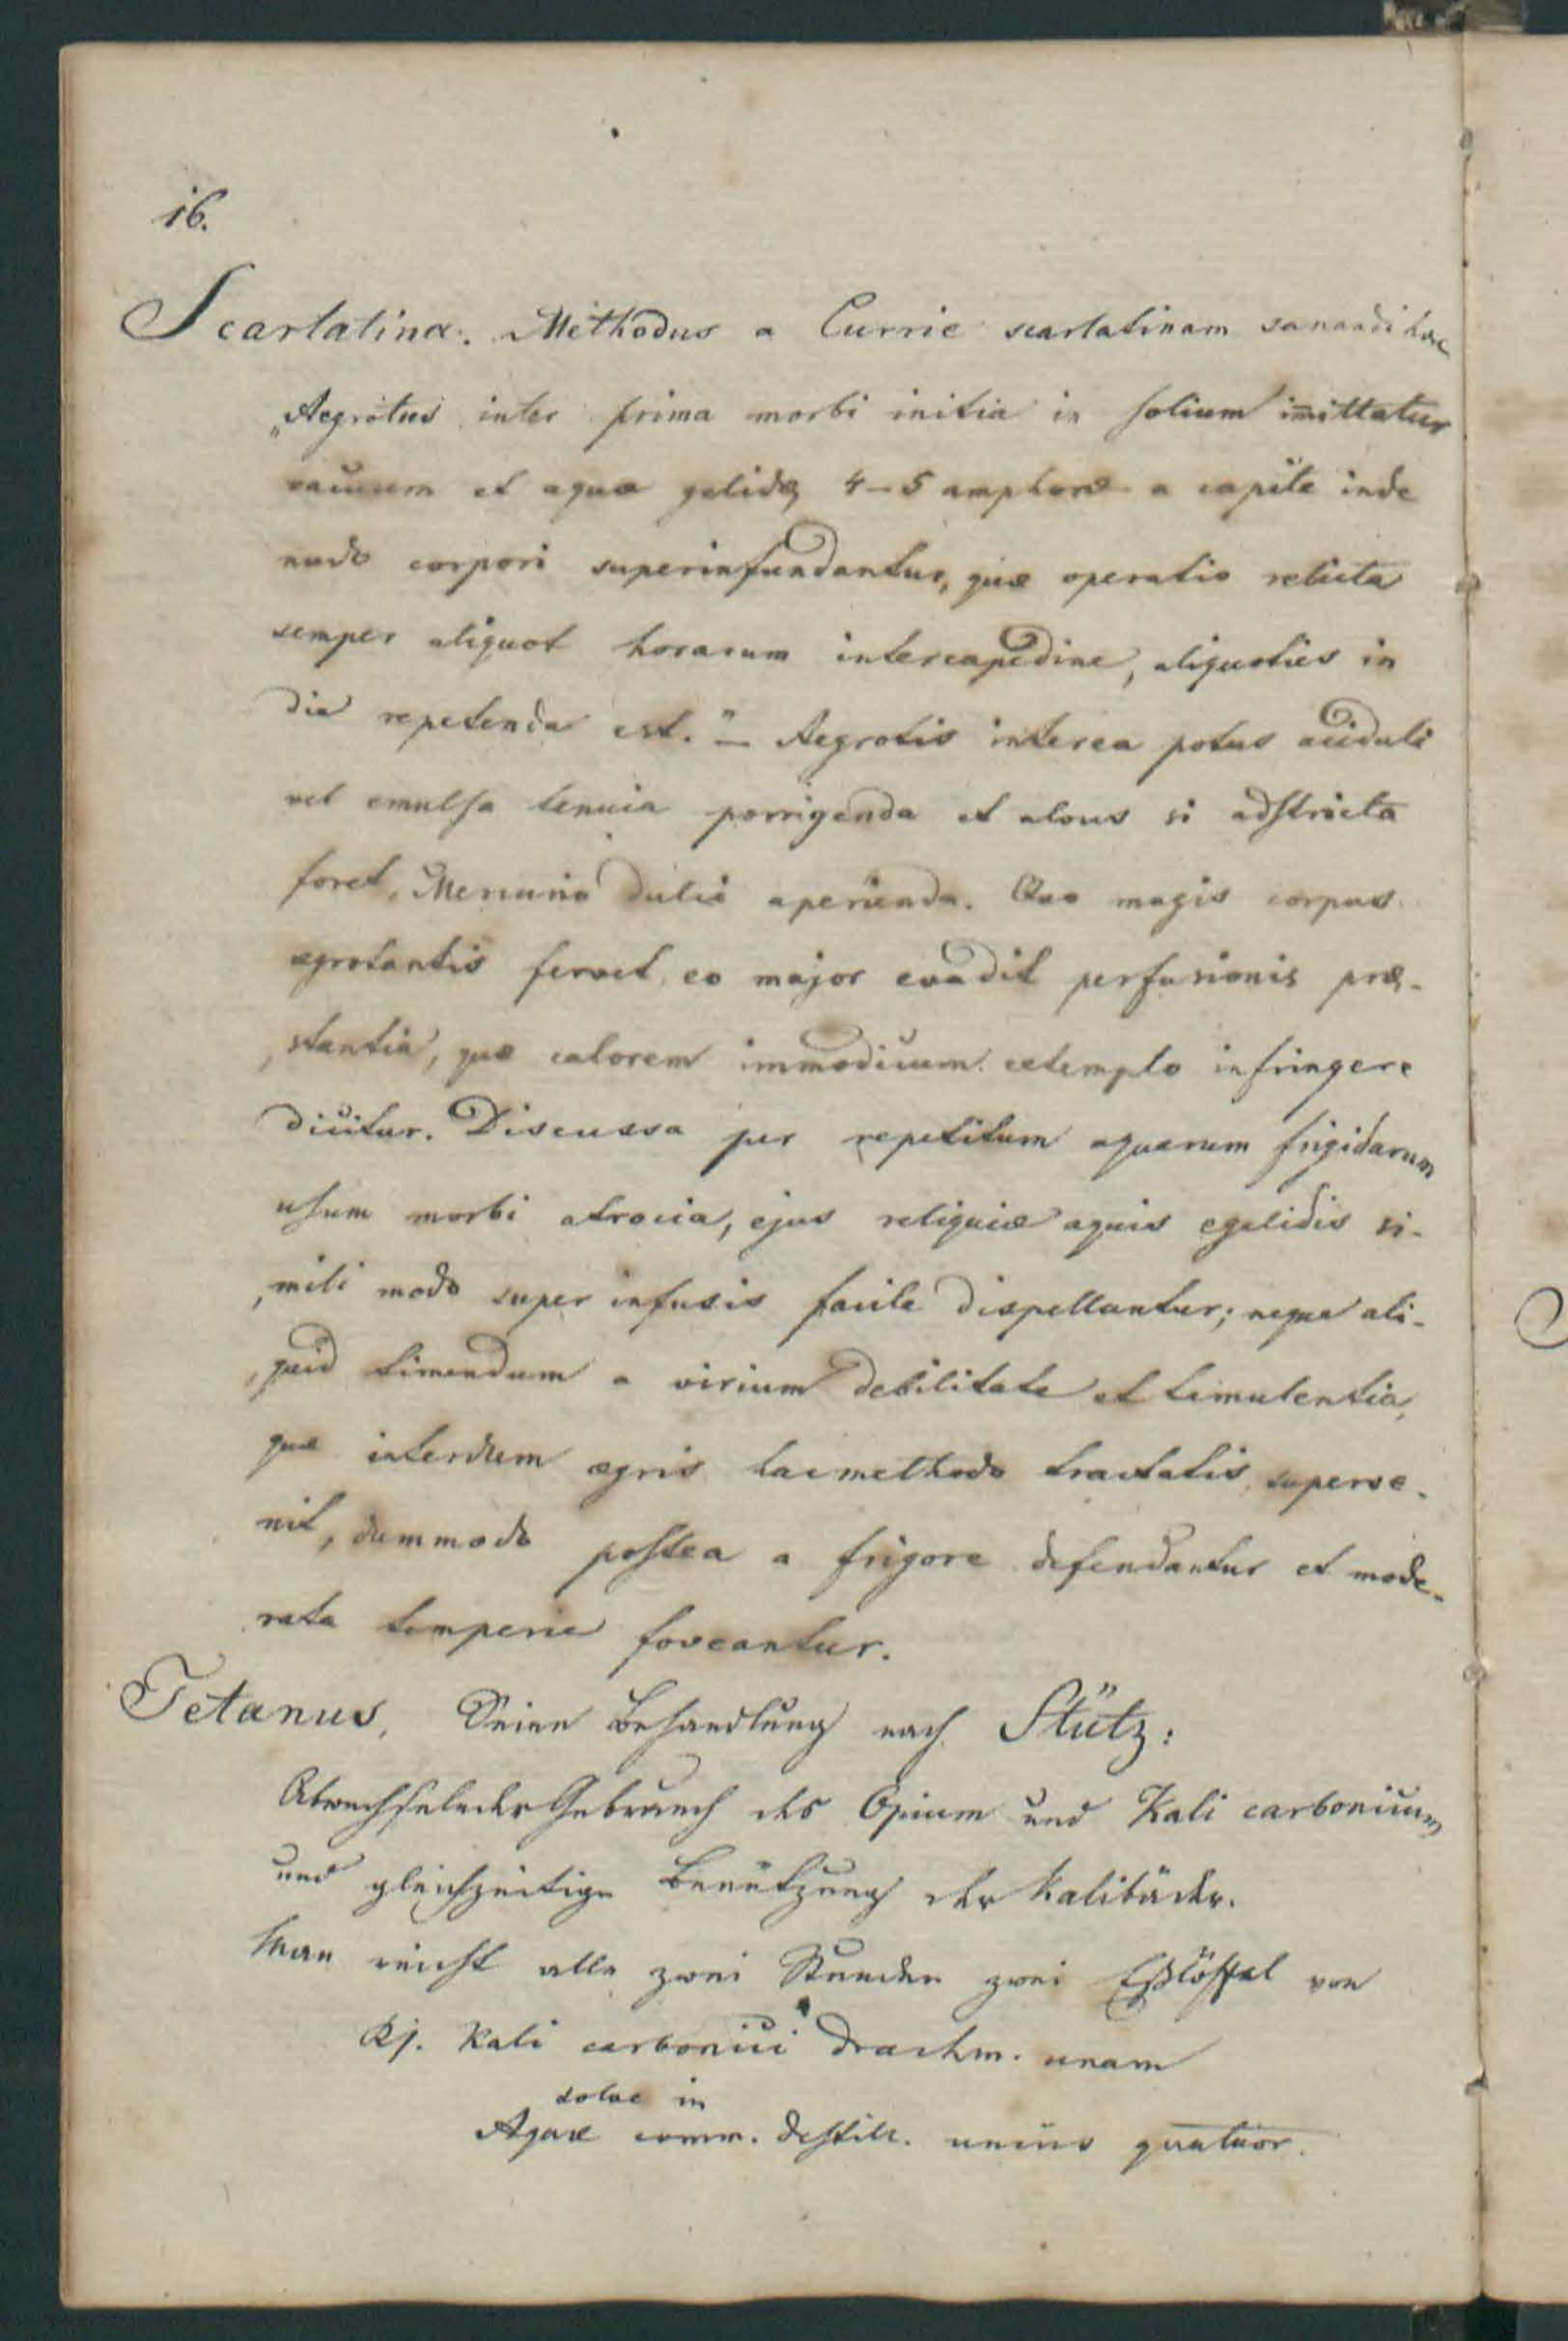 16.
Scarlatina. Methodus a Currie scarlatinam sanandi hæc
„Aegrotus inter prima morbi initia in solium im̄ittatur
vacuum et aquæ gelidæ 4–5 amphoræ a capite inde
nudo corpori superinfundantur, quæ operatio relicta
semper aliquot horarum intercapedine, aliquoties in
die repetenda est.“ – Aegrotis interea potus aciduli
vel emulsa tenuia porrigenda et alvus si adstricta
foret, Mercurio dulci aperienda. Quo magis corpus
ægrotantis fervet, eo major evadit perfusionis præ-
stantia, quæ calorem immodicum extemplo infringere
dicitur. Discussa per repetitum aquarum frigidarum
usum morbi atrocia, ejus reliquiæ aquis egelidis si-
mili modo super infusis facile dispellantur; neque ali-
quid timendum a virium debilitate et temulentia,
quæ interdum ægris hac methodo tractatis superve-
nit, dummodo postea a frigore defendantur et mode-
rata temperie foveantur.
Tetanus, Seine Behandlung nach Stütz:
Abwechselnder Gebrauch des Opium und Kali carbonicum
und gleichzeitige Benützung der Kalibäder.
Man reicht alle zwei Stunden zwei Eßlöffel von
Rj. Kali carbonici drachm. unam
solve in
Aquæ comm. destill. uncias quatuor.